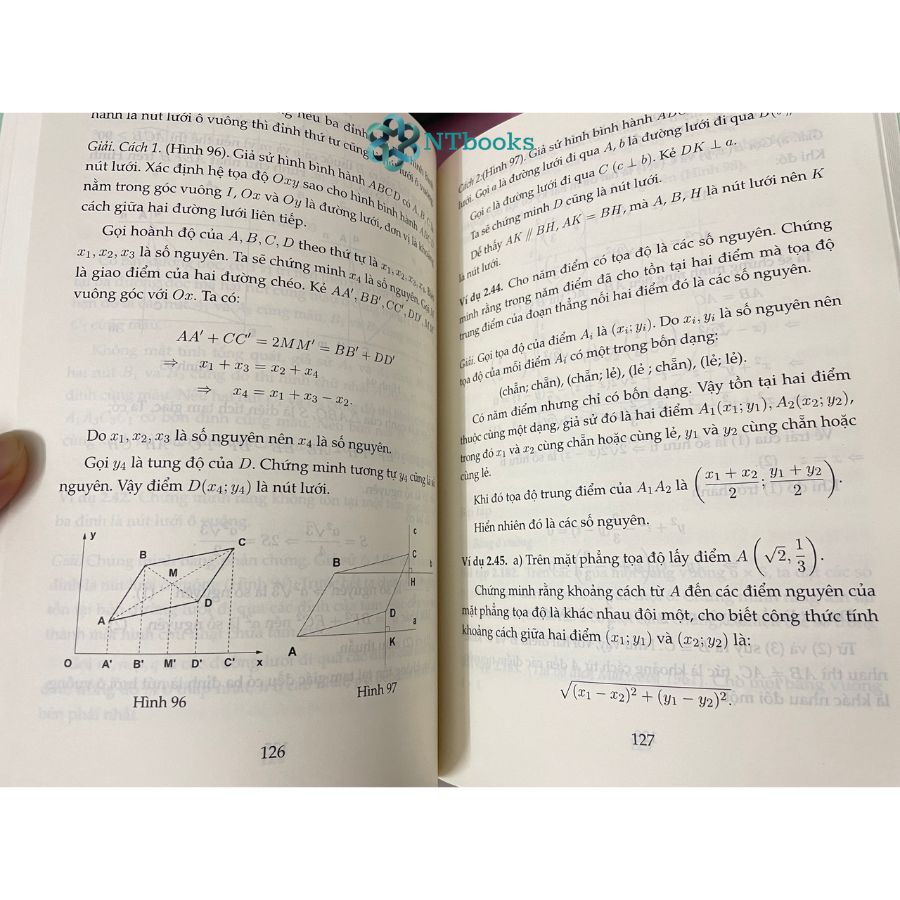 NTbooks
hành là nút lưới ô vuông thì đỉnh thứ tư cũng là
Giải. Cách 1. (Hình 96). Giả sử hình bình hành ABCD có A, B, C là
nút lưới. Xác định hệ tọa độ Oxy sao cho hình bình hành ABCD
nằm trong góc vuông I, Ox và Oy là đường lưới, đơn vị là khoảng
cách giữa hai đường lưới liên tiếp.
Gọi hoành độ của A, B, C, D theo thứ tự là x₁, x₂, x₃, x₄.
x₁, x₂, x₃ là số nguyên. Ta sẽ chứng minh x₄ là số nguyên. Gọi M
là giao điểm của hai đường chéo. Kẻ AA′, BB′, CC′, DD′, MM′
vuông góc với Ox. Ta có:
AA′ + CC′ = 2MM′ = BB′ + DD′
⇒ x₁ + x₃ = x₂ + x₄
⇒ x₄ = x₁ + x₃ − x₂.
Do x₁, x₂, x₃ là số nguyên nên x₄ là số nguyên.
Gọi y₄ là tung độ của D. Chứng minh tương tự y₄ cũng là số
nguyên. Vậy điểm D(x₄; y₄) là nút lưới.
y
C
B
M
D
A
O A' B' M' D' C' x
Hình 96
c
C
B
b
H
D
a
A
K
Hình 97
126
Cách 2:(Hình 97). Giả sử hình bình hành
lưới. Gọi a là đường lưới đi qua A, b là đường lưới đi qua
Gọi c là đường lưới đi qua C (c ⊥ b). Kẻ DK ⊥ a.
Ta sẽ chứng minh D cũng là nút lưới.
Dễ thấy AK ∥ BH, AK = BH, mà A, B, H là nút lưới nên K
là nút lưới.
Ví dụ 2.44. Cho năm điểm có tọa độ là các số nguyên. Chứng
minh rằng trong năm điểm đã cho tồn tại hai điểm mà tọa độ
trung điểm của đoạn thẳng nối hai điểm đó là các số nguyên.
Giải. Gọi tọa độ của điểm Aᵢ là (xᵢ; yᵢ). Do xᵢ, yᵢ là số nguyên nên
tọa độ của mỗi điểm Aᵢ có một trong bốn dạng:
(chẵn; chẵn), (chẵn; lẻ), (lẻ ; chẵn), (lẻ; lẻ).
Có năm điểm nhưng chỉ có bốn dạng. Vậy tồn tại hai điểm
thuộc cùng một dạng, giả sử đó là hai điểm A₁(x₁; y₁), A₂(x₂; y₂),
trong đó x₁ và x₂ cùng chẵn hoặc cùng lẻ, y₁ và y₂ cùng chẵn hoặc
cùng lẻ.
Khi đó tọa độ trung điểm của A₁A₂ là ((x₁ + x₂)/2; (y₁ + y₂)/2).
Hiển nhiên đó là các số nguyên.
Ví dụ 2.45. a) Trên mặt phẳng tọa độ lấy điểm A (√2, 1/3).
Chứng minh rằng khoảng cách từ A đến các điểm nguyên của
mặt phẳng tọa độ là khác nhau đôi một, cho biết công thức tính
khoảng cách giữa hai điểm (x₁; y₁) và (x₂; y₂) là:
√((x₁ − x₂)² + (y₁ − y₂)²).
127